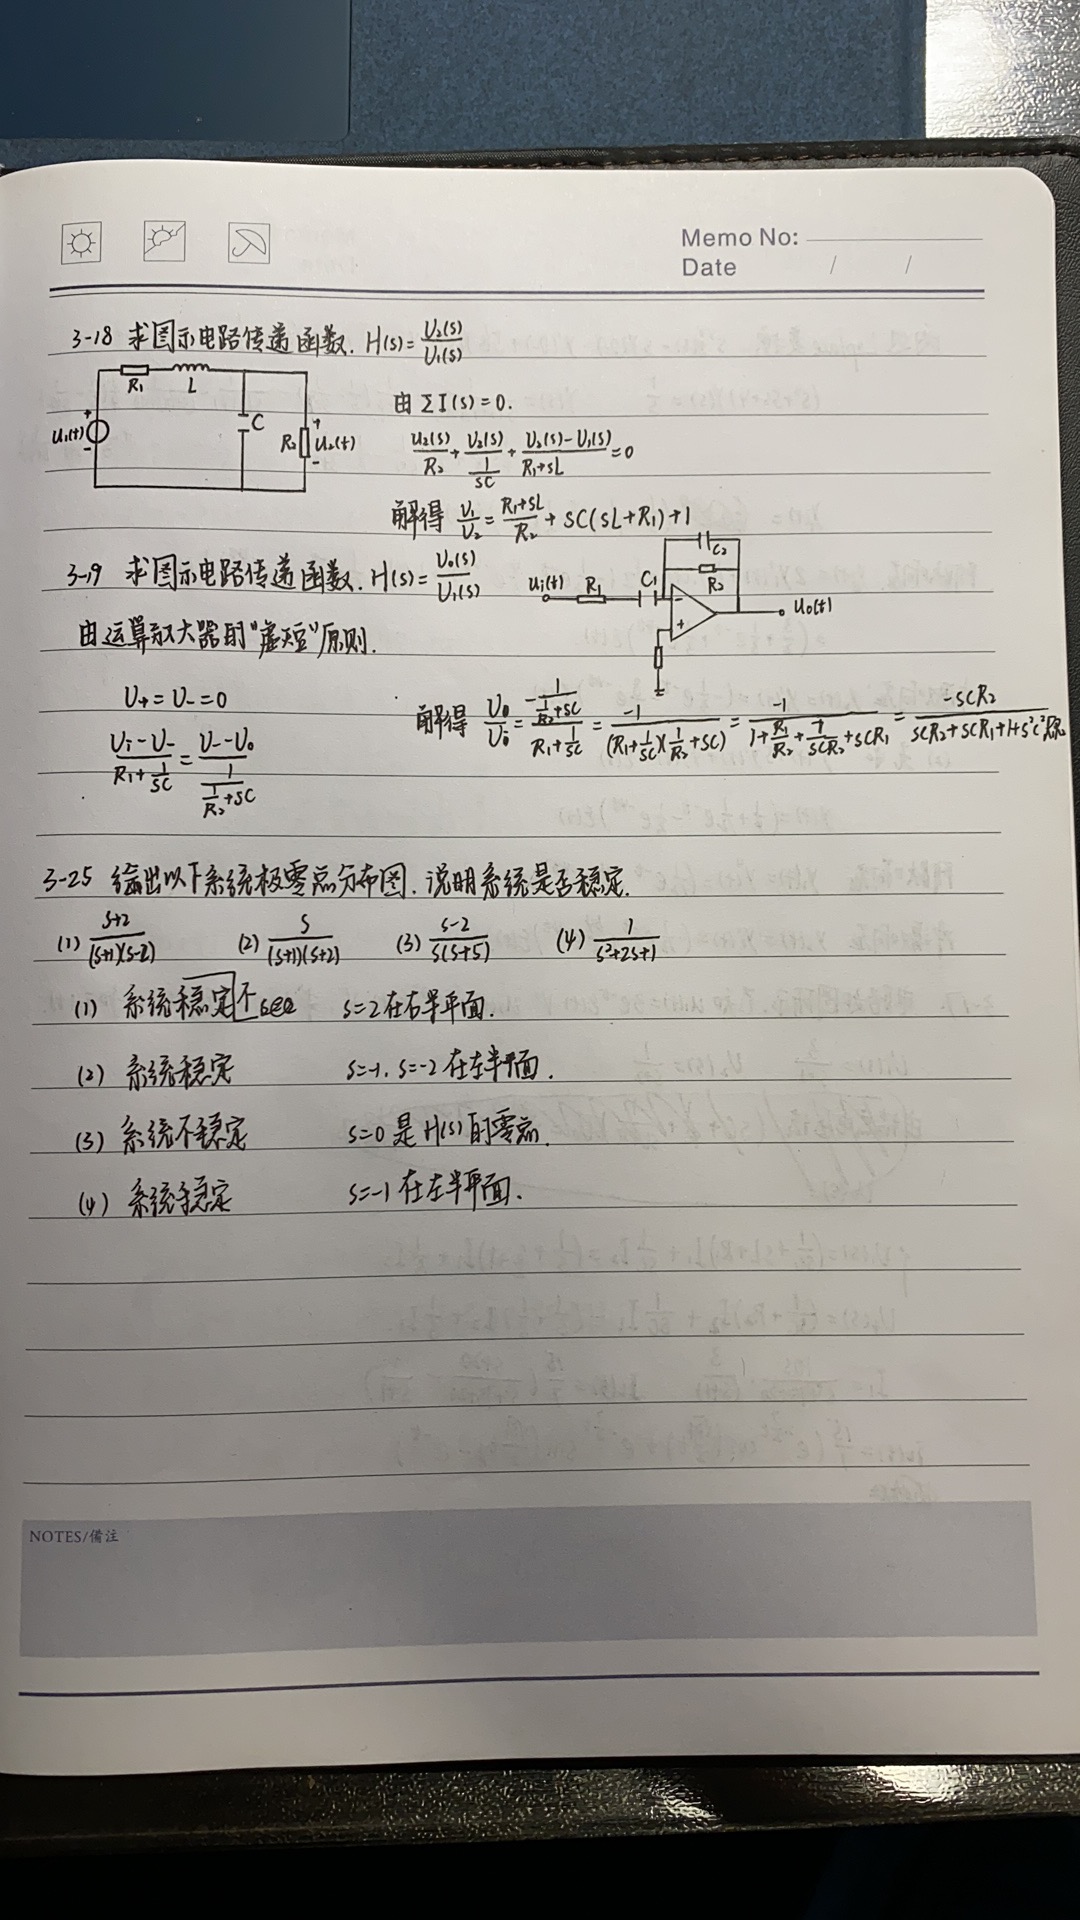 Memo No:
Date / /
3-18 求图示电路传递函数. H(s)=U₂(s)/U₁(s)
R₁ L C R₂ u₁(t) + - u₂(t) + -
由 ΣI(s)=0.
U₂(s)/R₂ + U₂(s)/(1/SC) + (U₂(s)-U₁(s))/(R₁+sL) =0
解得 U₁/U₂ = (R₁+sL)/R₂ + SC(sL+R₁)+1
3-19 求图示电路传递函数. H(s)=U₀(s)/U₁(s)
ui(t) R₁ C₁ C₂ R₂ - + u₀(t)
由运算放大器的"虚短"原则.
U₊=U₋=0
(Ui-U₋)/(R₁+1/SC) = (U₋-U₀)/(1/(1/R₂+SC))
解得 U₀/Ui = (-1/(1/R₂+SC))/(R₁+1/SC) = -1/((R₁+1/SC)(1/R₂+SC)) = -1/(1+R₁/R₂+1/SCR₂+SCR₁) = -SCR₂/(SCR₂+SCR₁+1+S²C²R₁R₂)
3-25 绘出以下系统极零点分布图.说明系统是否稳定.
(1) (s+2)/((s+1)(s-2)) (2) s/((s+1)(s+2)) (3) (s-2)/(s(s+5)) (4) 1/(s²+2s+1)
(1) 系统稳定不 s=2在右半平面.
(2) 系统稳定 s=-1, s=-2在左半平面.
(3) 系统不稳定 s=0是H(s)的零点.
(4) 系统稳定 s=-1在左半平面.
NOTES/備注